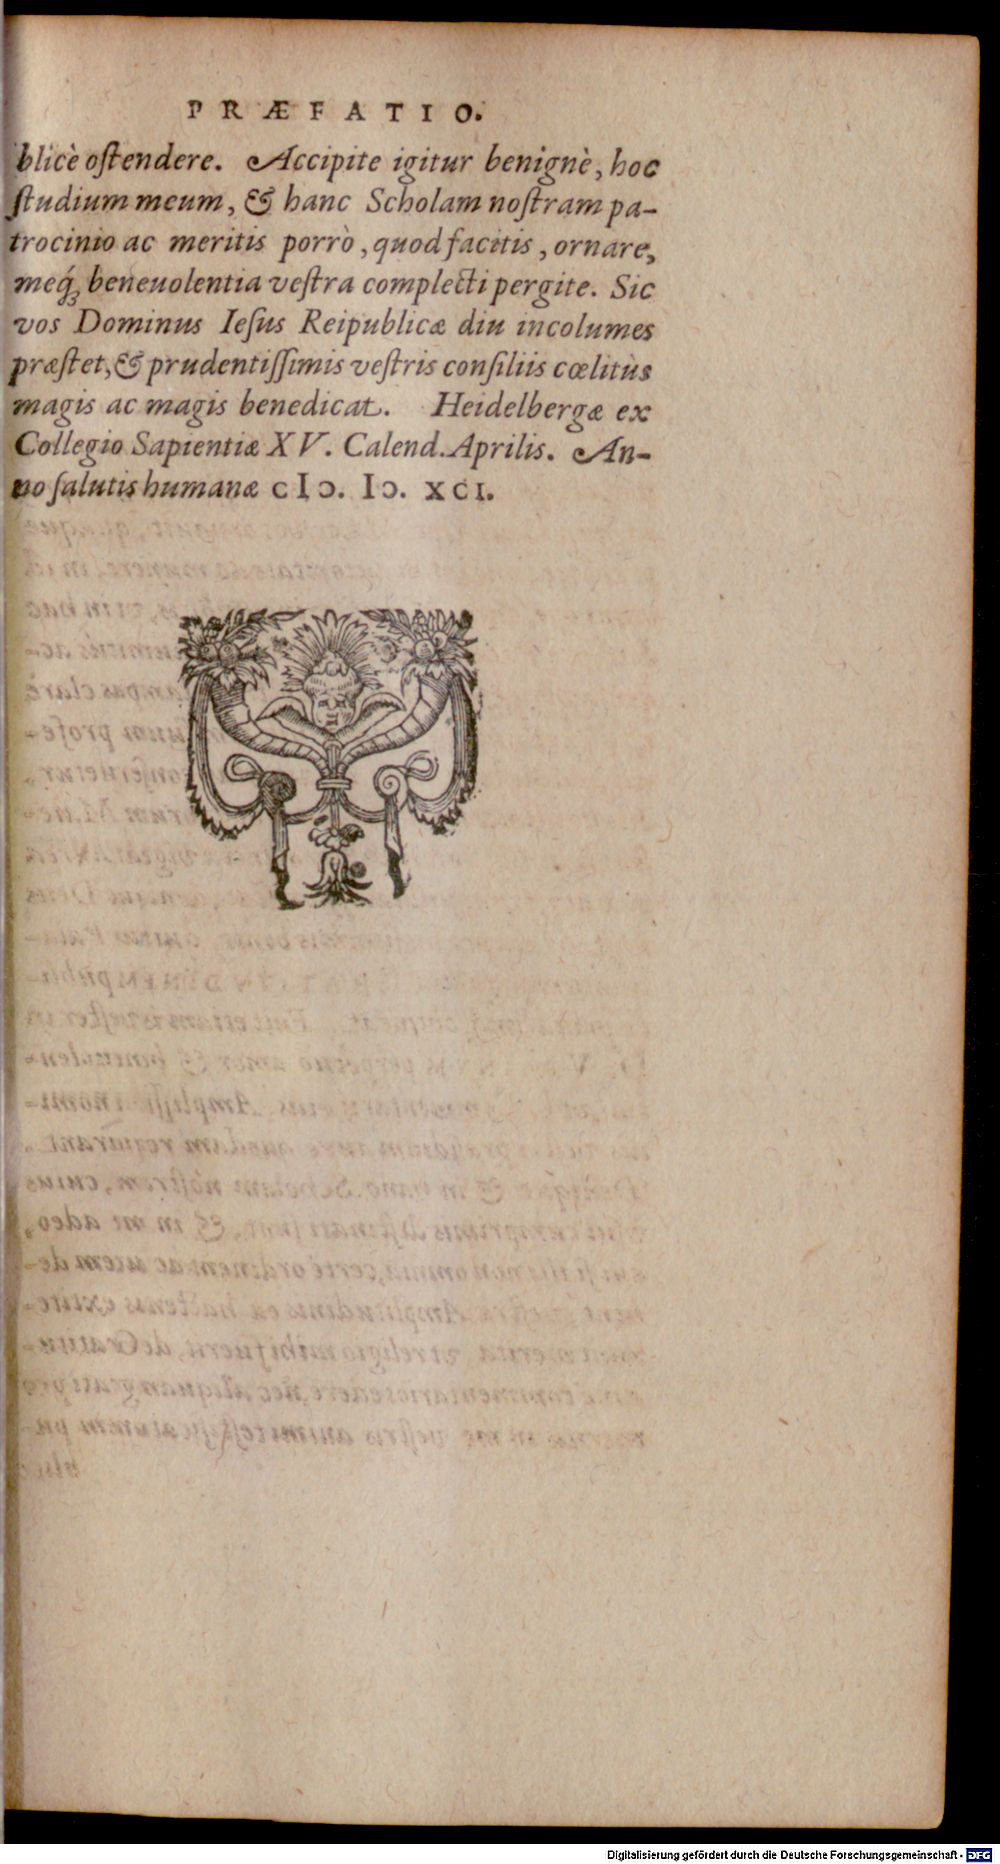 PRÆFATIO.
blicè oſtendere. Accipite igitur benignè, hoc
ſtudium meum, & hanc Scholam noſtram pa-
trocinio ac meritis porrò, quod facitis, ornare,
meq́; beneuolentia veſtra complecti pergite. Sic
vos Dominus Ieſus Reipublicæ diu incolumes
præſtet, & prudentiſſimis veſtris conſiliis cœlitùs
magis ac magis benedicat. Heidelbergæ ex
Collegio Sapientiæ XV. Calend. Aprilis. An-
no ſalutis humanæ CIↃ. IↃ. XCI.
Digitalisierung gefördert durch die Deutsche Forschungsgemeinschaft - DFG